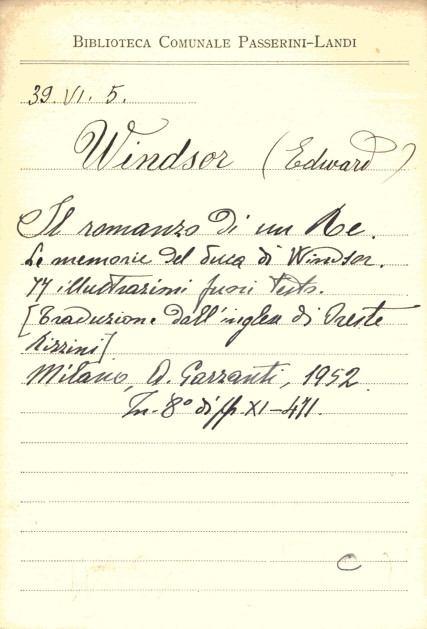 BIBLIOTECA COMUNALE PASSERINI-LANDI
39. VI. 5.
Windsor (Edward)
Il romanzo di un Re.
Le memorie del duca di Windsor.
77 illustrazioni fuori testo.
[Traduzione dall'inglese di Oreste
Rizzini]
Milano, A. Garzanti, 1952
In-8° di pp. XI-471.
C